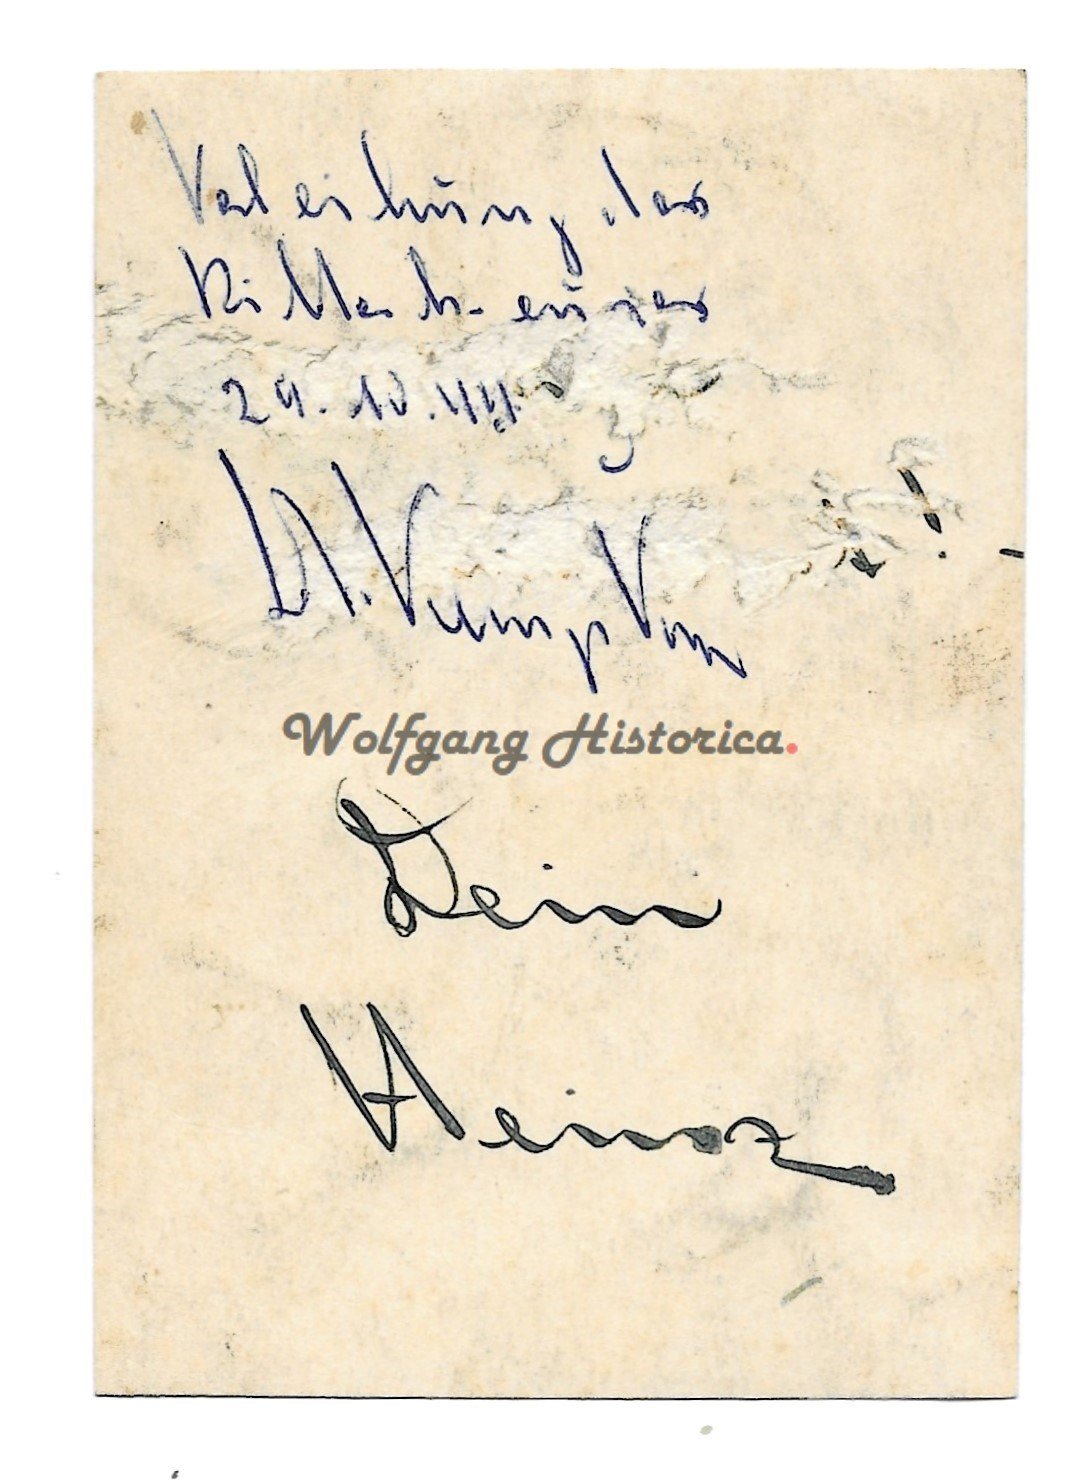 Verleihung des
Ritterkreuzes
29.10.44
Wolfgang Historica.
Dein
Heinz